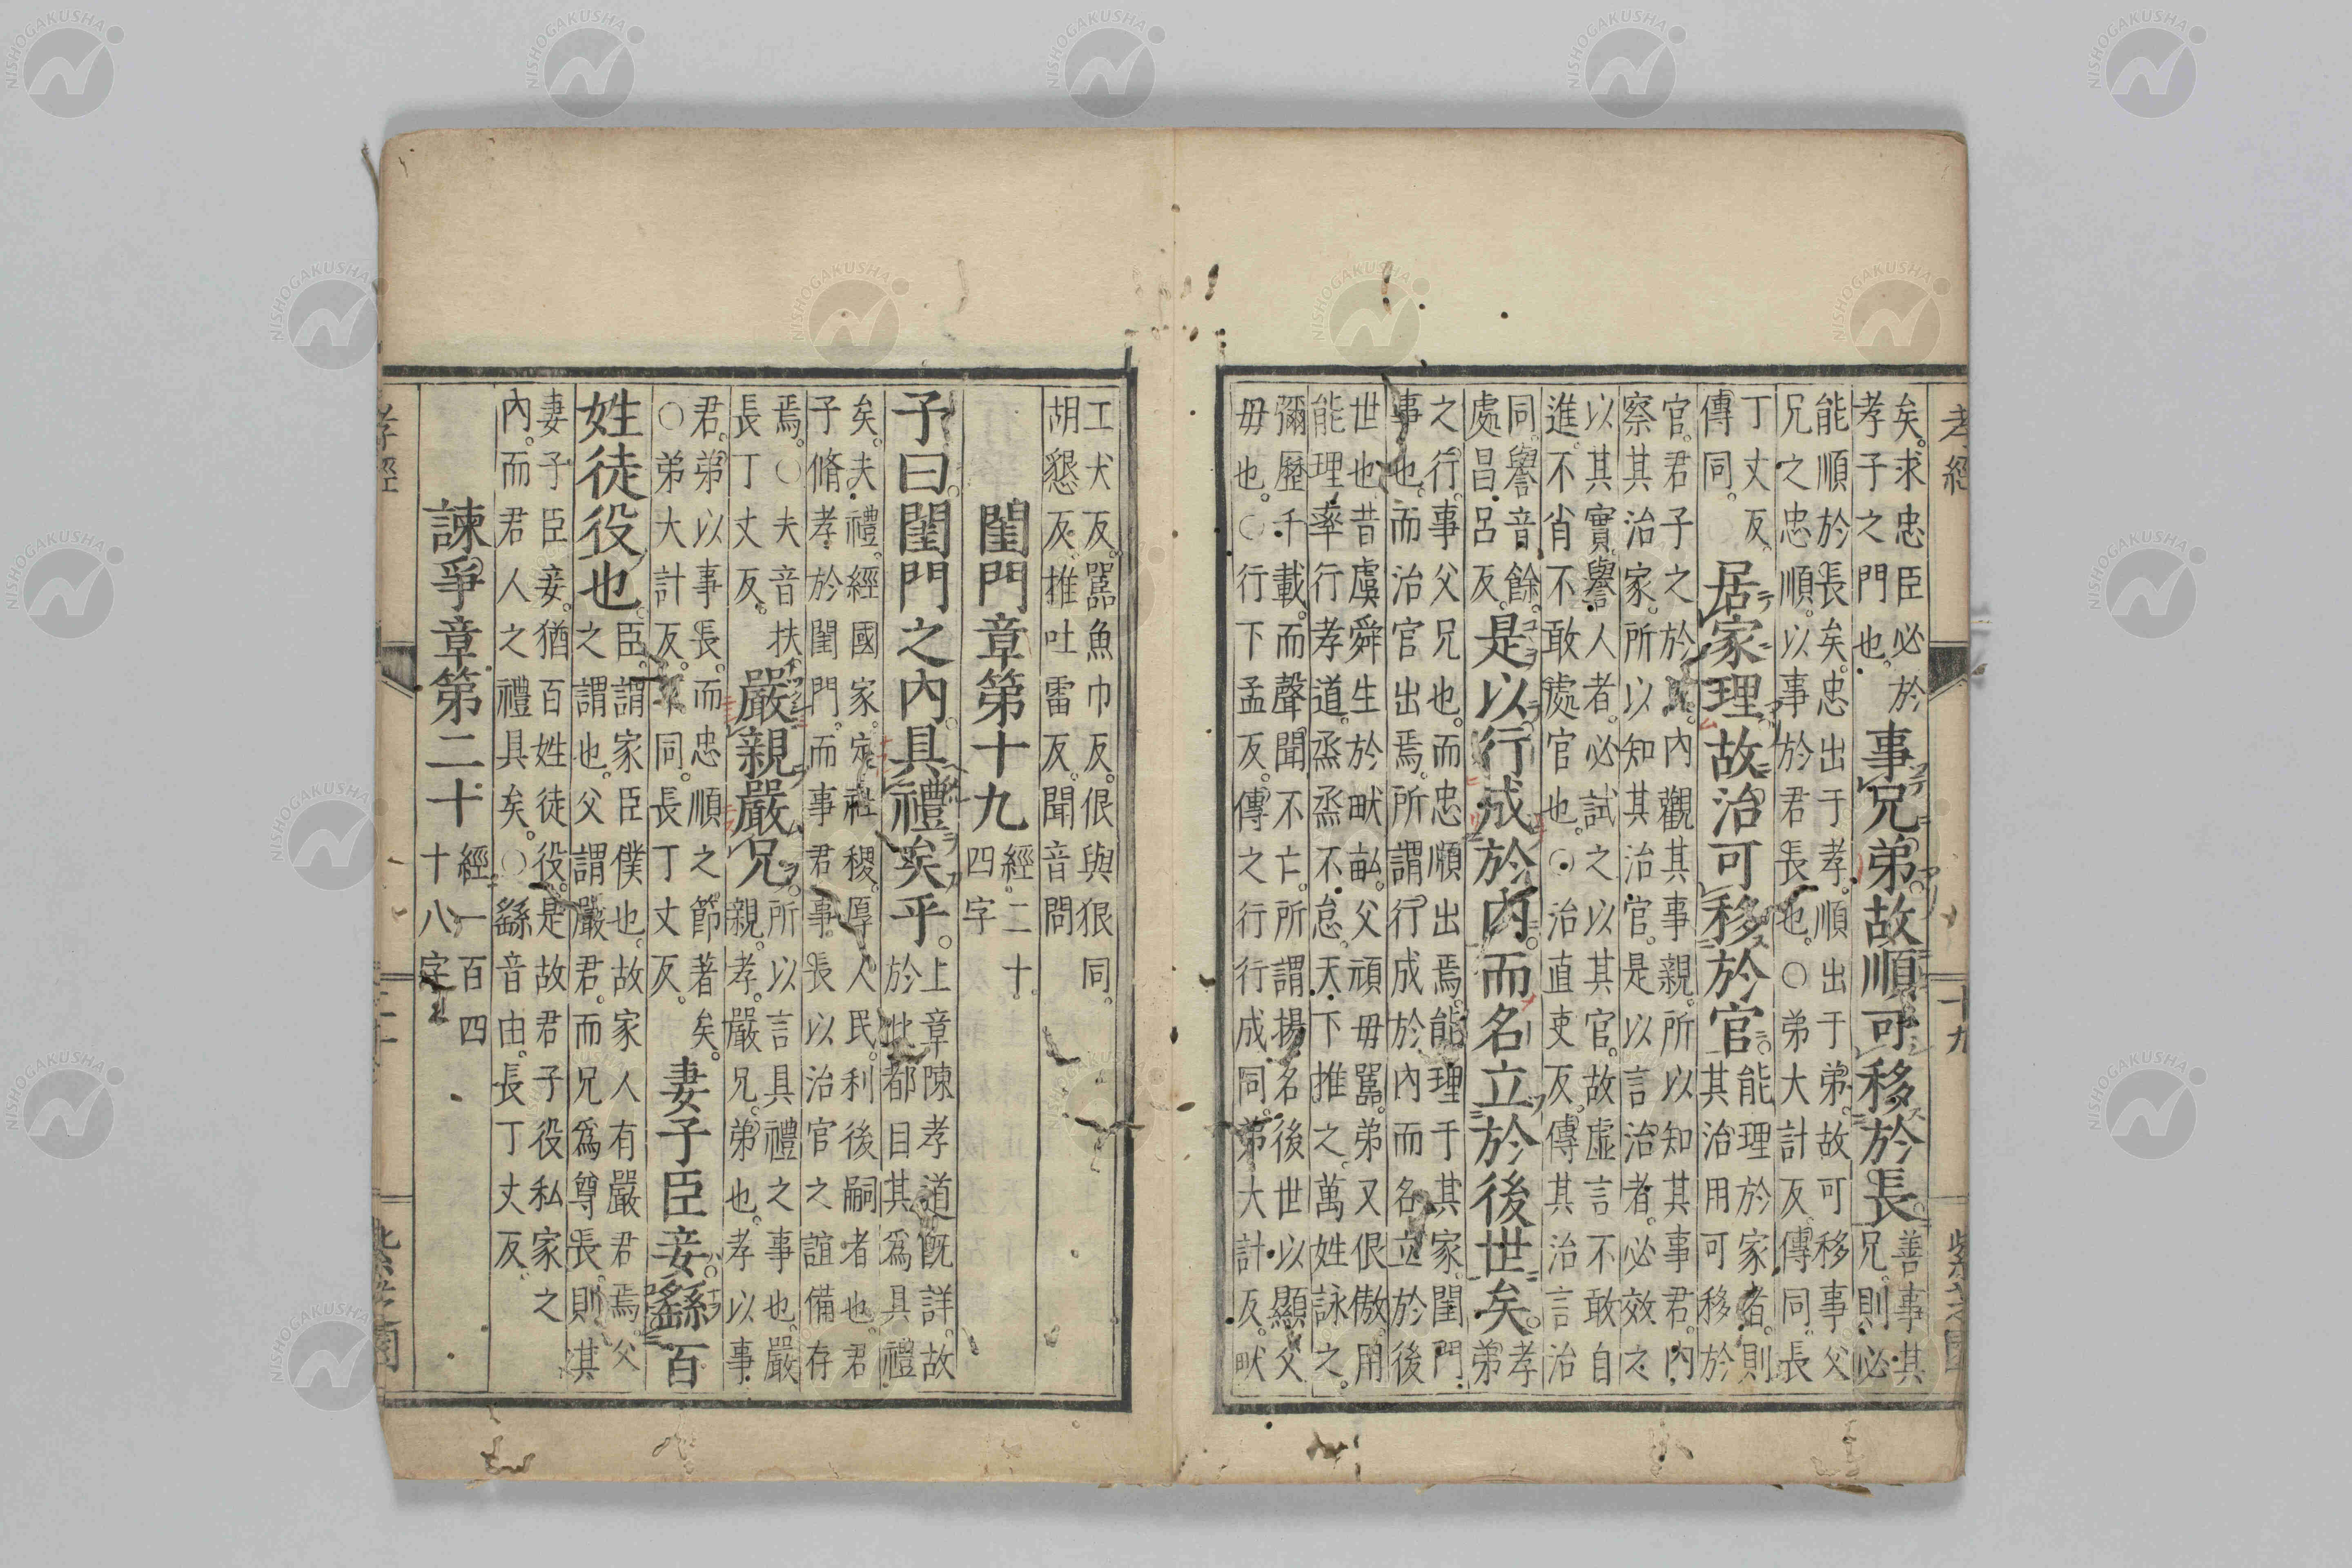 孝經
十九
紫芝園
矣。求忠臣必於
孝子之門也。
事兄弟。故順可移於長。
善事其
兄。則必
能順於長矣。忠出于孝。順出于弟。故可移事父
兄之忠順。以事於君長也。○弟大計反。傳同。長
丁丈反。
傳同。
居家理。故治可移於官。
能理於家者。則
其治用可移於
官。君子之於人。內觀其事親。所以知其事君。內
察其治家。所以知其治官。是以言治者。必效之
以其實。譽人者。必試之以其官。故虛言不敢自
進。不肖不敢處官也。○治直吏反。傳其治言治
同。譽音餘。
處昌呂反。
是以行成於內。而名立於後世矣。
孝
弟
之行。事父兄也。而忠順出焉。能理于其家。閨門
事也。而治官出焉。所謂行成於內。而名立於後
世也昔虞舜生於畎畝。父頑毋嚚。弟又佷傲。用
能理率行孝道。烝烝不怠。天下推之。萬姓詠之。
彌歷千載。而聲聞不亡。所謂揚名後世。以顯父
毋也。○行下孟反。傳之行行成同。弟大計反。畎
工犬反。嚚魚巾反。佷與狠同。
胡懇反。推吐雷反。聞音問
閨門章第十九
經二十。
四字
子曰閨門之內。具禮矣乎。
上章陳孝道既詳。故
於此都目其爲具禮
矣。夫禮。經國家。定社稷。厚人民。利後嗣者也。君
子脩孝於閨門。而事君事長。以治官之誼備存
焉。○夫音扶。
長丁丈反。
嚴親嚴兄。
所以言具禮之事也。嚴
親。孝。嚴兄。弟也。孝以事
君。弟以事長。而忠順之節著矣。
○弟大計反。下同。長丁丈反。
妻子臣妾。繇百
姓徒役也。
臣。謂家臣僕也。故家人有嚴君焉。父
之謂也。父謂嚴君。而兄爲尊長。則其
妻子臣妾。猶百姓徒役。是故君子役私家之
內。而君人之禮具矣。○繇音由。長丁丈反。
諫爭章第二十
經一百四
十八字
孝經
NISHOGAKUSHA